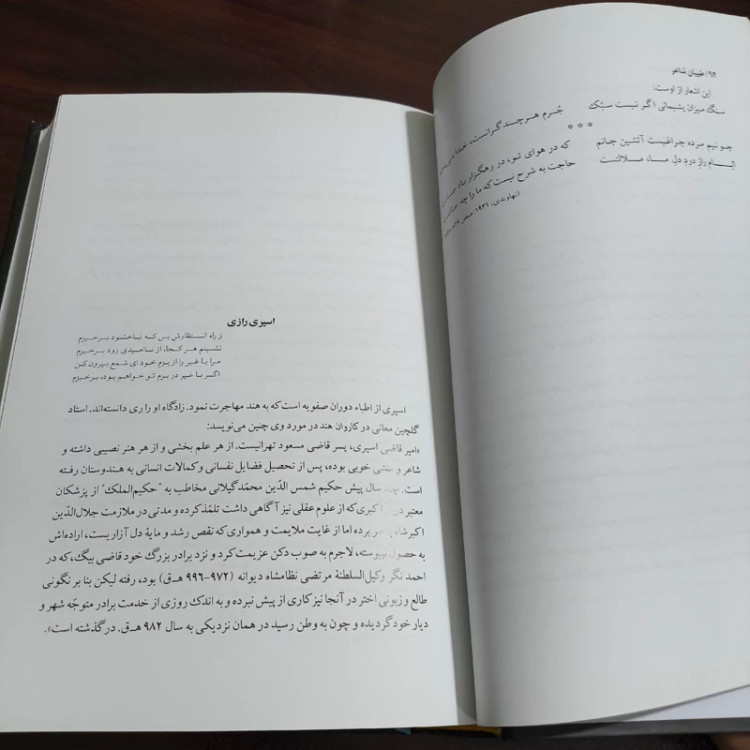 ۹۴ / طبیبان شاعر
این اشعار از اوست:
جُرم هر چند گرانست، خدا
سنگ میزان پشیمانی اگر نیست سبُک
***
که در هوای تو، در رهگزار باد
چو نیم مرده چراغیست آتشین جانم
حاجت به شرح نیست که ما را چه
دلِ ما، ملالت
اسیری رازی
ز راه انتظارش بس که ناخشنود برخیزم
نشینم هر کجا، از ناامیدی زود برخیزم
مرا با غیر را از بزم خود ای شمع بیرون کن
اگر با غیر در بزم تو خواهم بود، برخیزم
اسیری از اطباء دوران صفویه است که به هند مهاجرت نمود. زادگاه او را ری دانسته‌اند. استاد
گلچین معانی در کاروان هند در مورد وی چنین می‌نویسد:
«امیر قاضی اسیری، پسر قاضی مسعود تهرانیست. از هر علم بخشی و از هر هنر نصیبی داشته و
شاعر و منشی خوبی بوده، پس از تحصیل فضایل نفسانی و کمالات انسانی به هندوستان رفته
است. چند سال پیش حکیم شمس الدّین محمّد گیلانی مخاطب به "حکیم‌الملک" از پزشکان
معتبر دربار اکبری که از علوم عقلی نیز آگاهی داشت تلمّذ کرده و مدتی در ملازمت جلال‌الدّین
اکبرشاه بسر برده اما از غایت ملایمت و همواری که نقص رشد و مایهٔ دل آزاریست، اراده‌اش
به حصول نپیوسته، لاجرم به صوب دکن عزیمت کرد و نزد برادر بزرگ خود قاضی بیگ، که در
احمد نگر وکیل‌السلطنهٔ مرتضی نظامشاه دیوانه (۹۷۲-۹۹۶ هـ.ق) بود، رفته لیکن بنا بر نگونی
طالع و زبونی اختر در آنجا نیز کاری از پیش نبرده و به اندک روزی از خدمت برادر متوجّه شهر و
دیار خود گردیده و چون به وطن رسید در همان نزدیکی به سال ۹۸۲ هـ.ق. درگذشته است».